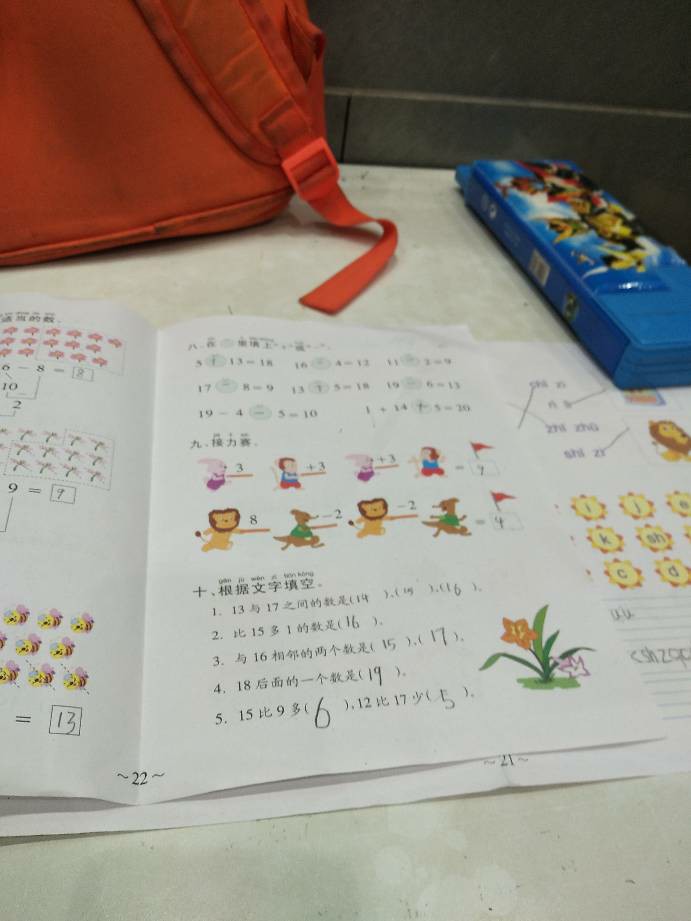 适当的数。
6 - 8 = 8
10
2
9 = 9
= 13
~22~
八、在 里填上"+"或"-"。
5 + 13=18 16 - 4=12 11 - 2=9
17 - 8=9 13 + 5=18 19 - 6=13
19 - 4 - 5=10 1 + 14 + 5=20
jiē lì sài
九、接力赛。
3 +3 +3 = 9
8 -2 -2 = 4
gēn jù wén zì tián kòng
十、根据文字填空。
1. 13与17之间的数是(14 ),(15 ),(16 )。
2. 比15多1的数是(16 )。
3. 与16相邻的两个数是( 15 ),( 17 )。
4. 18后面的一个数是(19 )。
5. 15比9多(6 ),12比17少(5 )。
~21~
chī zi
zhī zhū
shī zi
i j e
k sh
c d